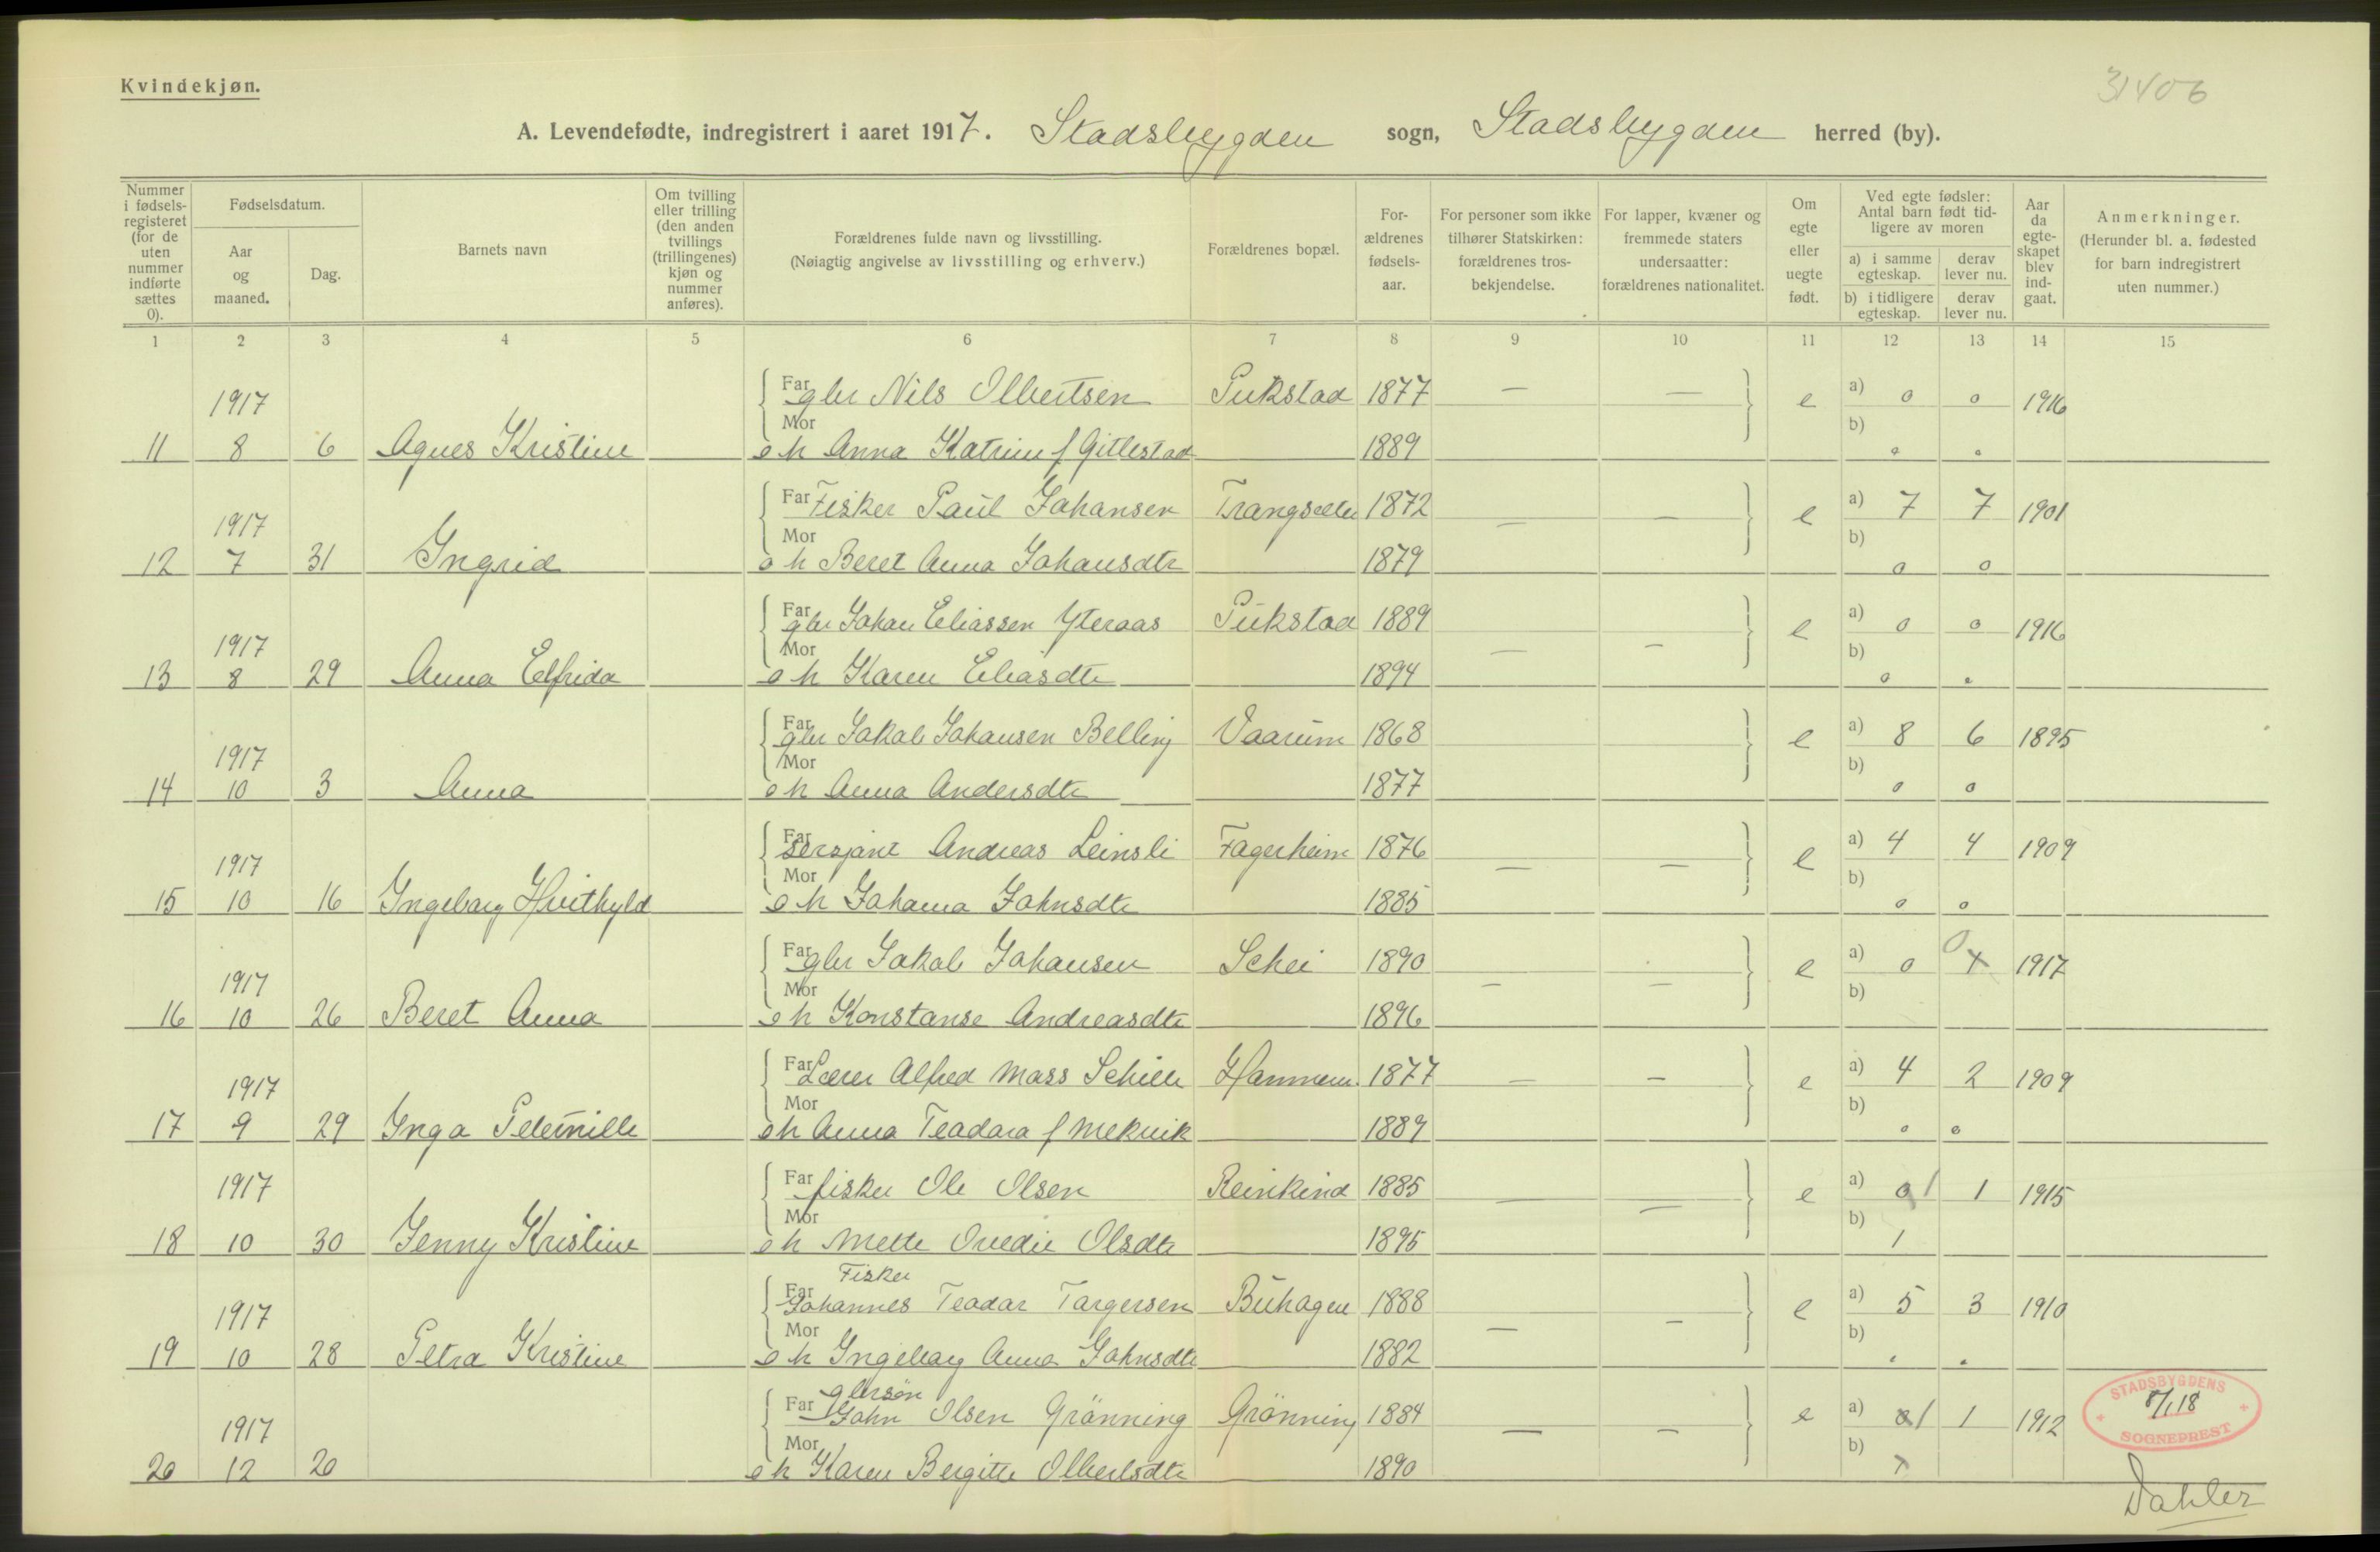 Kvindekjøn.
31406
A. Levendefødte, indregistrert i aaret 1917. Stadsbygden sogn, Stadsbygden herred (by).
Nummer i fødselsregisteret (for de uten nummer indførte sættes 0).
Fødselsdatum.
Aar og maaned.
Dag.
Barnets navn
Om tvilling eller trilling (den anden tvillings (trillingenes) kjøn og nummer anføres).
Forældrenes fulde navn og livsstilling.
(Nøiagtig angivelse av livsstilling og erhverv.)
Forældrenes bopæl.
Forældrenes fødselsaar.
For personer som ikke tilhører Statskirken: forældrenes trosbekjendelse.
For lapper, kvæner og fremmede staters undersaatter: forældrenes nationalitet.
Om egte eller uegte født.
Ved egte fødsler: Antal barn født tidligere av moren
a) i samme egteskap. derav lever nu.
b) i tidligere egteskap. derav lever nu.
Aar da egteskapet blev indgaat.
Anmerkninger.
(Herunder bl. a. fødested for barn indregistrert uten nummer.)
1 2 3 4 5 6 7 8 9 10 11 12 13 14 15
1917 Far gbr Nils Olbertsen Pukstad 1877 — — e a) 0 0 1916
11 8 6 Agnes Kristine Mor e h Anna Katrine f Gitlestad 1889 b) 0 0
1917 Far Fisker Paul Johansen 1872 — — e a) 7 7 1901
12 7 31 Ingrid Mor e h Beret Anna Johansdtr 1879 b) 0 0
1917 Far gbr Johan Eliassen Yteraas Pukstad 1889 — — e a) 0 0 1916
13 8 29 Anna Elfrida Mor e h Karen Eliasdtr 1894 b) 0 0
1917 Far gbr Jakob Johansen Belling Vaarum 1868 e a) 8 6 1895
14 10 3 Anna Mor e h Anna Andersdtr 1877 b) 0 0
1917 Far Sersjant Andreas Leinsli Fagerheim 1876 — — e a) 4 4 1909
15 10 16 Ingeborg Hvithyld Mor e h Johanna Johnsdtr 1885 b) 0 0
1917 Far gbr Jakob Johansen Schei 1890 — — e a) 0 0 1917
16 10 26 Beret Anna Mor e h Konstanse Andreasdtr 1896 b)
1917 Far Lærer Alfred Mass Schille Hammern 1877 — — e a) 4 2 1909
17 9 29 Inga Peternille Mor e h Anna Teadora f Meknik 1889 b) 0 0
1917 Far fisker Ole Olsen Reinkind 1885 — — e a) 0 1 1 1915
18 10 30 Jenny Kristine Mor e h Mette Ovedie Olsdtr 1895 b) 1
Fisker
1917 Far Johannes Teodor Torgersen Buhagen 1888 — — e a) 5 3 1910
19 10 28 Petra Kristine Mor e h Ingeborg Anna Johnsdtr 1882 b)
gbrsøn
1917 Far John Olsen Grönning Grönning 1884 — — e a) 1 1 1912
20 12 20 Mor e h Karen Bergitte Olbertsdtr 1890 b)
STADSBYGDENS
8/1 18
SOGNEPREST
Dahler